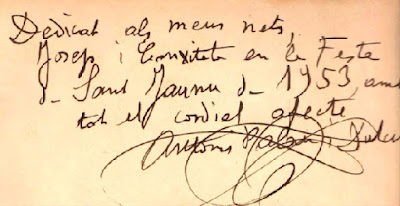 Dedicat als meus nets,
Josep i en la Festa
de Sant Jaume de 1953, amb
tot el cordial afecte
Antoni Palau i Dulcet